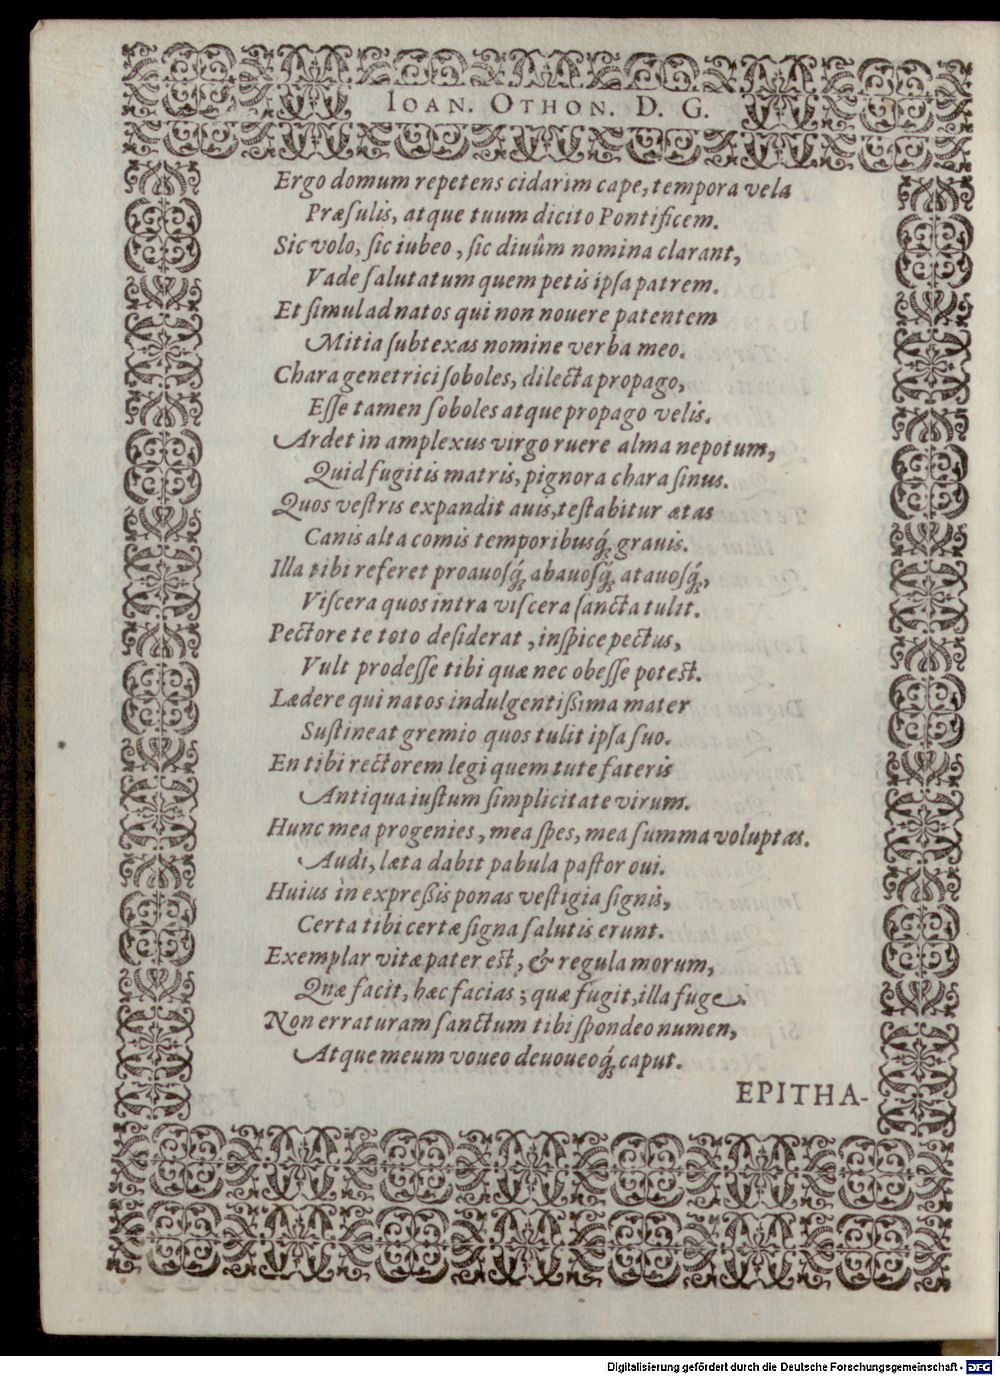 IOAN. OTHON. D. G.
Ergo domum repetens cidarim cape, tempora vela
Præſulis, atque tuum dicito Pontificem.
Sic volo, ſic iubeo, ſic diuûm nomina clarant,
Vade ſalutatum quem petis ipſa patrem.
Et ſimul ad natos qui non nouere patentem
Mitia ſubtexas nomine verba meo.
Chara genetrici ſoboles, dilecta propago,
Eſſe tamen ſoboles atque propago velis.
Ardet in amplexus virgo ruere alma nepotum,
Quid fugitis matris, pignora chara ſinus.
Quos veſtris expandit auis, teſtabitur ætas
Canis alta comis temporibusq́; grauis.
Illa tibi referet proauoſq́; abauoſq́; atauoſq́;,
Viſcera quos intra viſcera ſancta tulit.
Pectore te toto deſiderat, inſpice pectus,
Vult prodeſſe tibi quæ nec obeſſe poteſt.
Lædere qui natos indulgentißima mater
Suſtineat gremio quos tulit ipſa ſuo.
En tibi rectorem legi quem tute fateris
Antiqua iuſtum ſimplicitate virum.
Hunc mea progenies, mea ſpes, mea ſumma voluptas.
Audi, læta dabit pabula paſtor oui.
Huius in expreßis ponas veſtigia ſignis,
Certa tibi certæ ſigna ſalutis erunt.
Exemplar vitæ pater eſt, & regula morum,
Quæ facit, hæc facias; quæ fugit, illa fuge.
Non erraturam ſanctum tibi ſpondeo numen,
Atque meum voueo deuoueoq́; caput.
EPITHA-
Digitalisierung gefördert durch die Deutsche Forschungsgemeinschaft - DFG